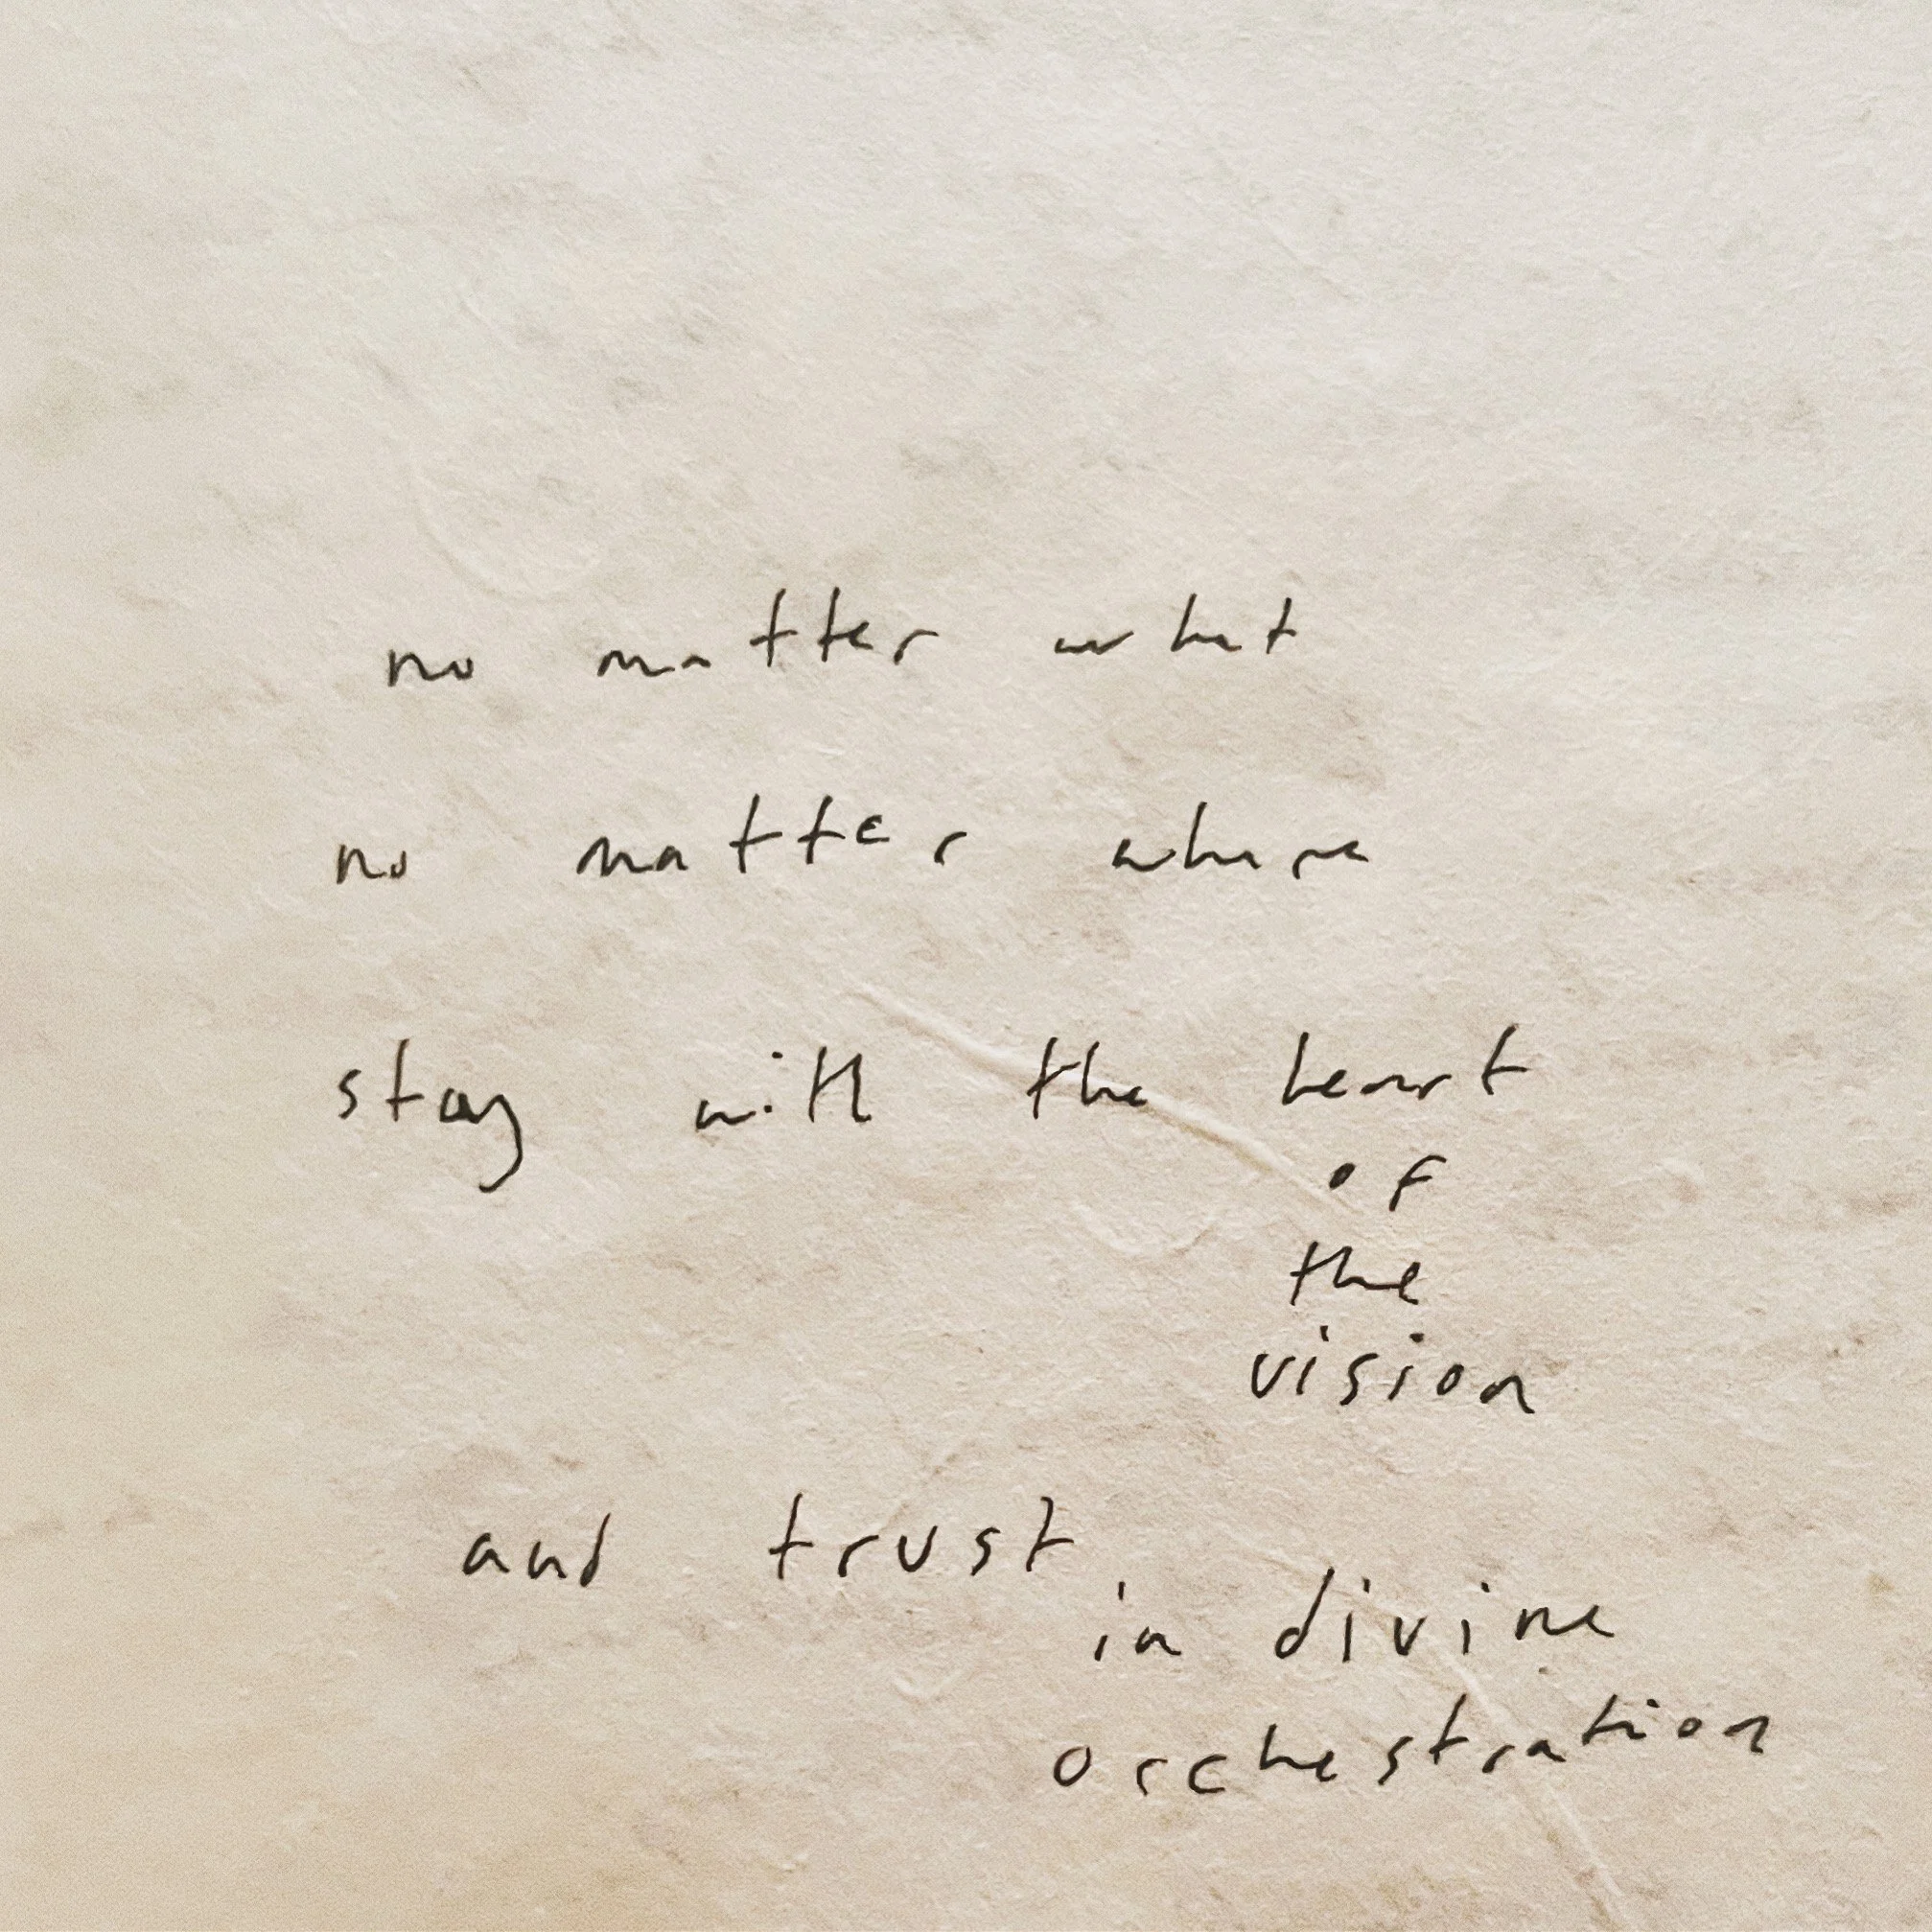 no matter what
no matter where
stay with the heart
of
the
vision
and trust
in divine
orchestration